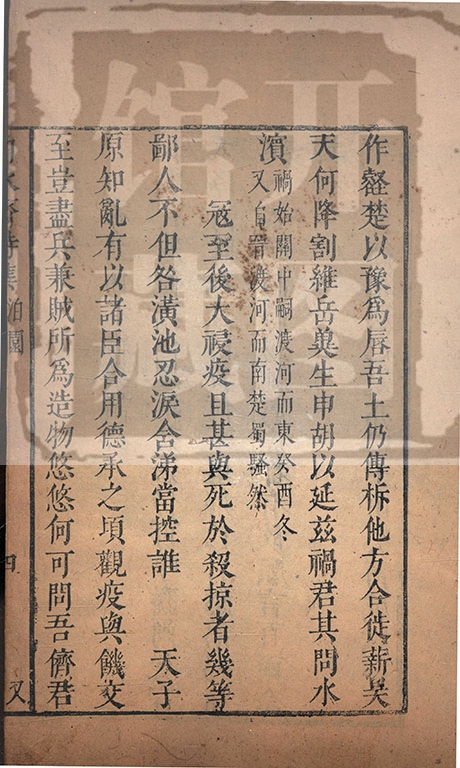 作壑楚以豫為脣吾土仍傳柝他方合徙薪吴
天何降割維岳奠生申胡以延兹禍君其問水
濱禍始關中嗣渡河而東癸酉冬
又自晉渡河而南楚蜀騷然
寇至後大祲疫且甚與死於殺掠者幾等
鄙人不但咎潢池忍淚舍涕當控誰 天子
原知亂有以諸臣合用德承之頃觀疫與饑交
至豈盡兵兼賊所為造物悠悠何可問吾儕君
集泊園
四
又